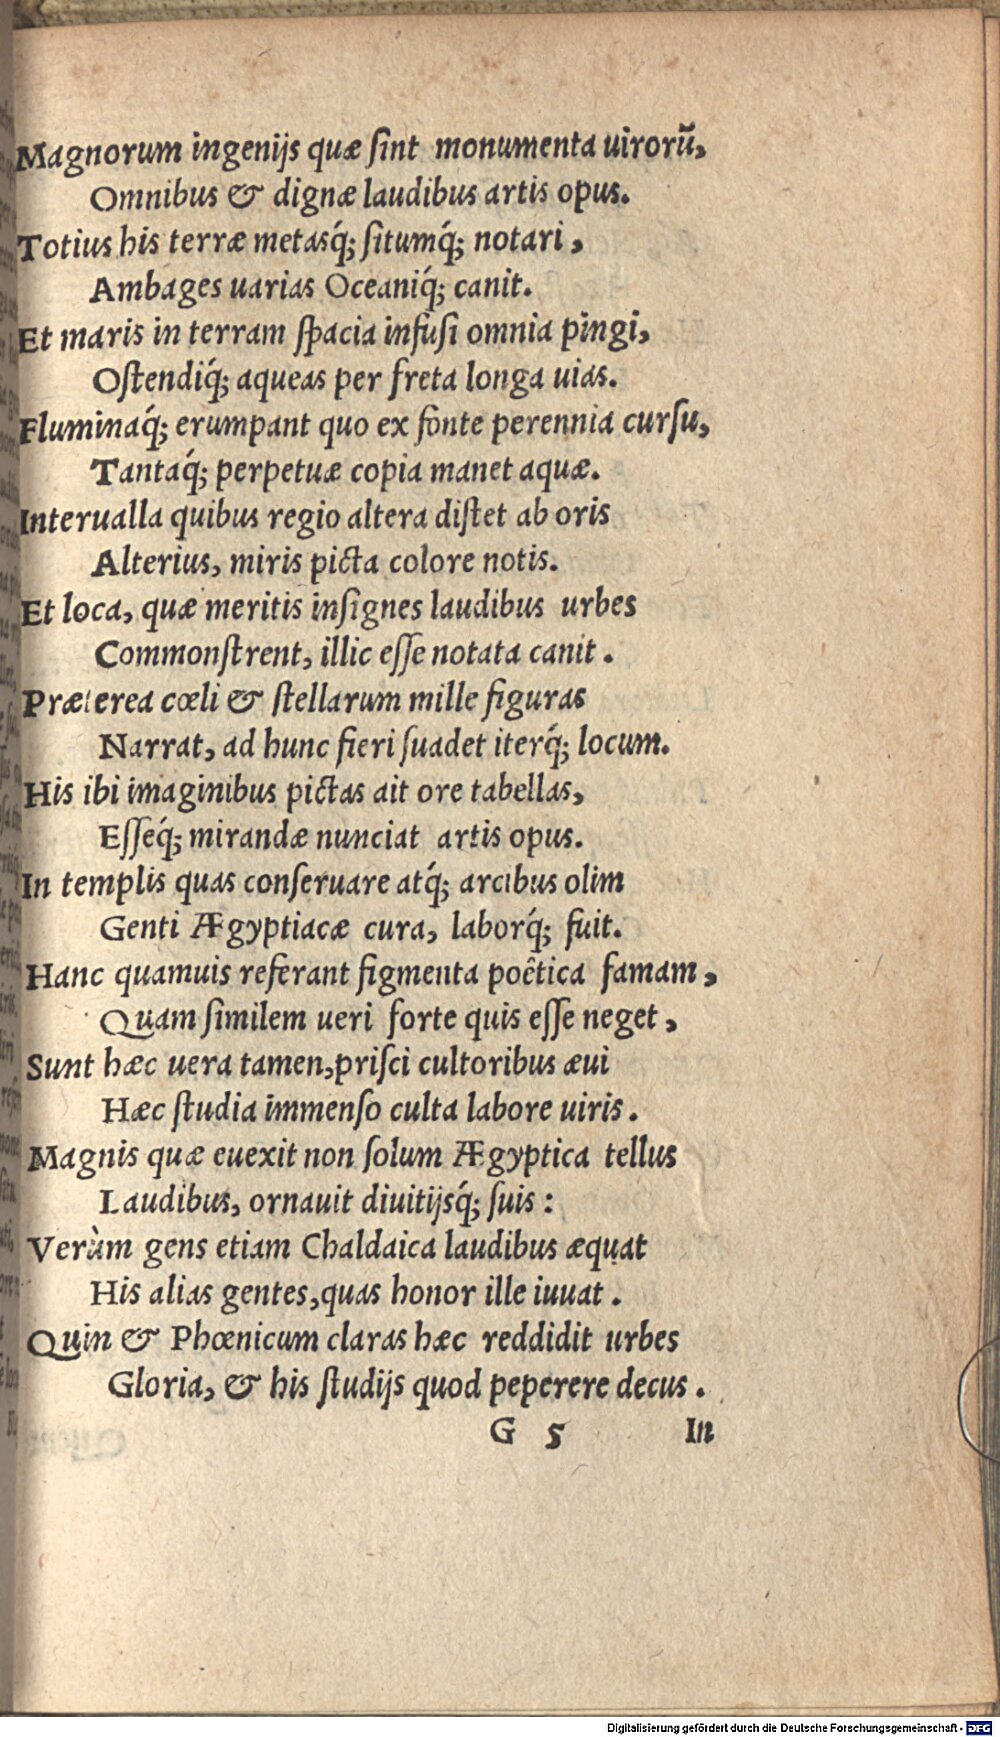 Magnorum ingenijs quæ ſint monumenta uirorũ,
Omnibus & dignæ laudibus artis opus.
Totius his terræ metasq́; ſitumq́; notari,
Ambages uarias Oceaniq́; canit.
Et maris in terram ſpacia infuſi omnia pingi,
Oſtendiq́; aqueas per freta longa uias.
Fluminaq́; erumpant quo ex fonte perennia curſu,
Tantaq́; perpetuæ copia manet aquæ.
Interualla quibus regio altera diſtet ab oris
Alterius, miris picta colore notis.
Et loca, quæ meritis inſignes laudibus urbes
Commonſtrent, illic eſſe notata canit.
Præterea cœli & ſtellarum mille figuras
Narrat, ad hunc fieri ſuadet iterq́; locum.
His ibi imaginibus pictas ait ore tabellas,
Eſſeq́; mirandæ nunciat artis opus.
In templis quas conſeruare atq́; arcibus olim
Genti Ægyptiacæ cura, laborq́; fuit.
Hanc quamuis referant figmenta poêtica famam,
Quam ſimilem ueri forte quis eſſe neget,
Sunt hæc uera tamen,priſci cultoribus æui
Hæc ſtudia immenſo culta labore uiris.
Magnis quæ euexit non ſolum Ægyptica tellus
Laudibus, ornauit diuitijsq́; ſuis:
Verùm gens etiam Chaldaica laudibus æquat
His alias gentes,quas honor ille iuuat.
Quin & Phœnicum claras hæc reddidit urbes
Gloria, & his ſtudijs quod peperere decus.
G 5 In
Digitalisierung gefördert durch die Deutsche Forschungsgemeinschaft - DFG